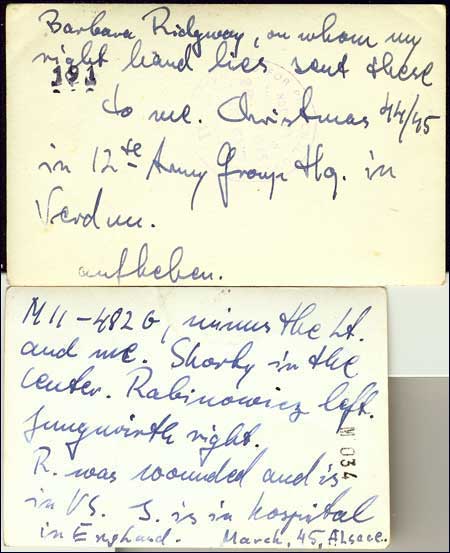 Barbara Ridgway, on whom my
right hand lies sent these
191
to me. Christmas 44/45
in 12te Army Group Hq. in
Verdun.
aufheben.
M II-482G, minus the Lt.
and me. Shorty in the
center. Rabinowicz left.
Jungwirth right.
M 034
R. was wounded and is
in US. J. is in hospital
in England. March, 45, Alsace.